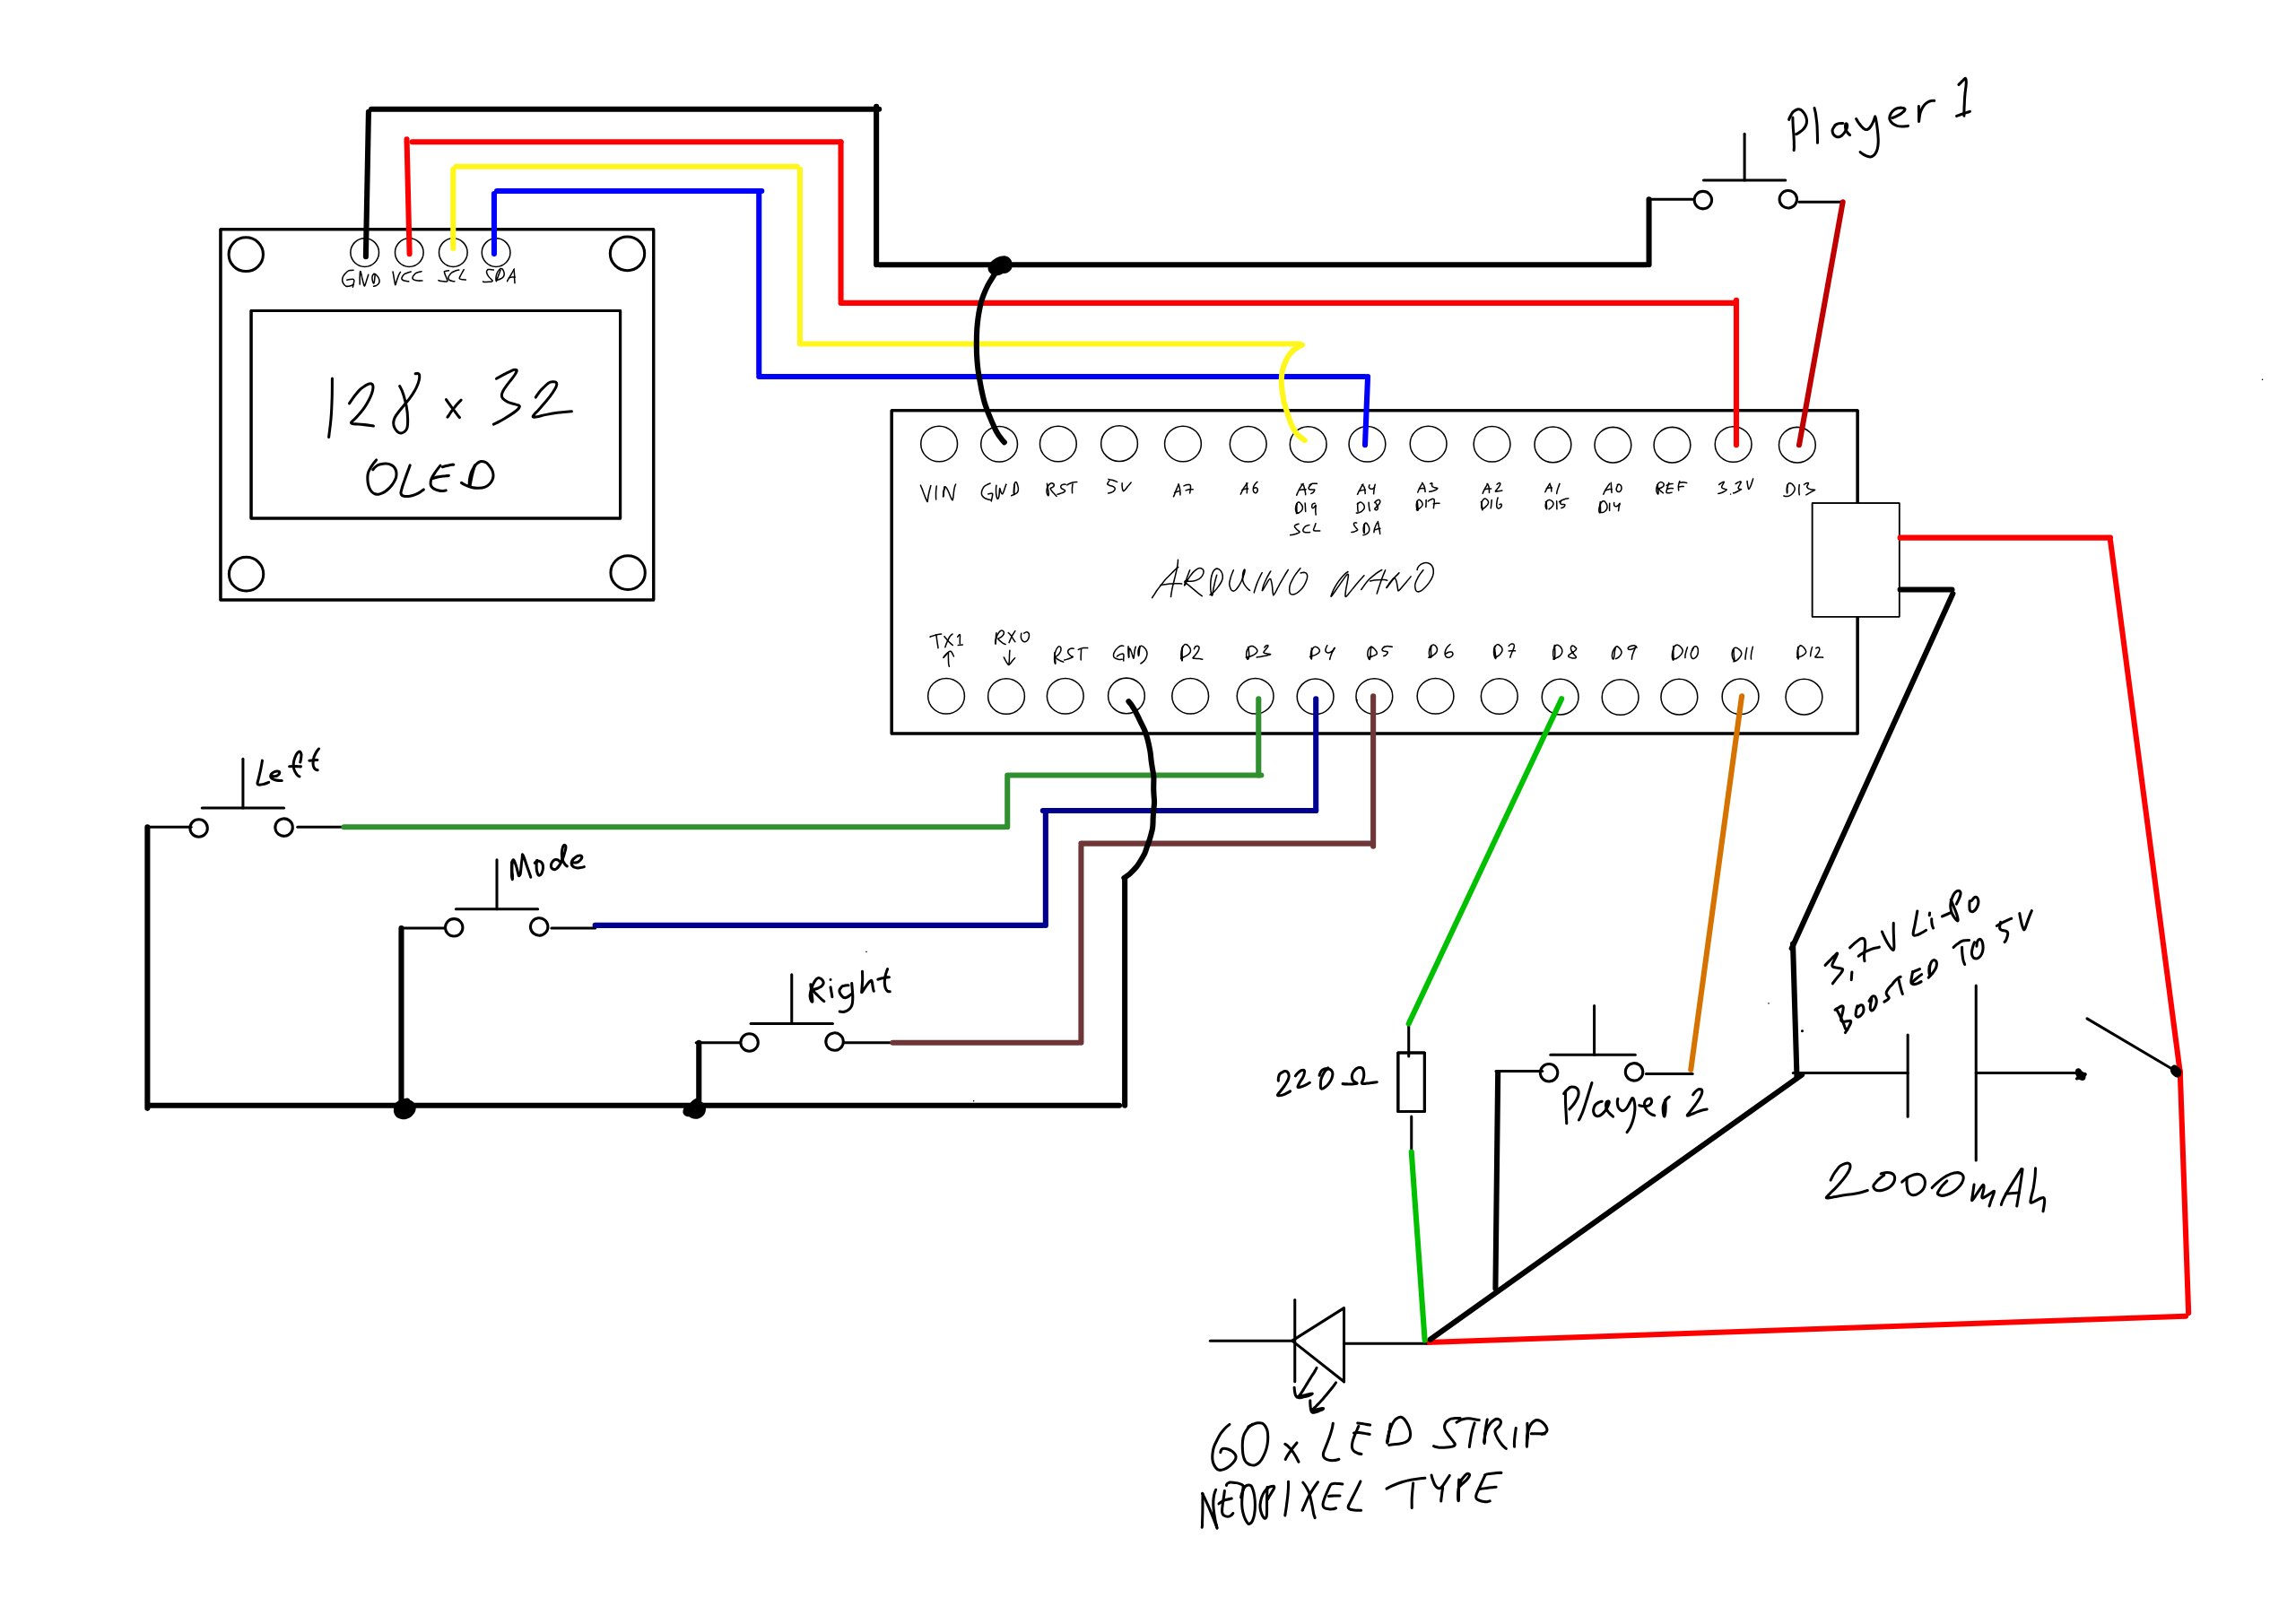 Player 1
GND VCC SCL SDA
128 x 32
OLED
VIN GND RST 5V A7 A6 A5 A4 A3 A2 A1 A0 REF 3.3V D13
D19 D18 D17 D16 D15 D14
SCL SDA
ARDUINO NANO
TX1 RX0 RST GND D2 D3 D4 D5 D6 D7 D8 D9 D10 D11 D12
Left
Mode
Right
3,7V Li-Po
BOOSTED TO 5V
220Ω
Player 2
2000mAh
60x LED STRIP
NEOPIXEL TYPE